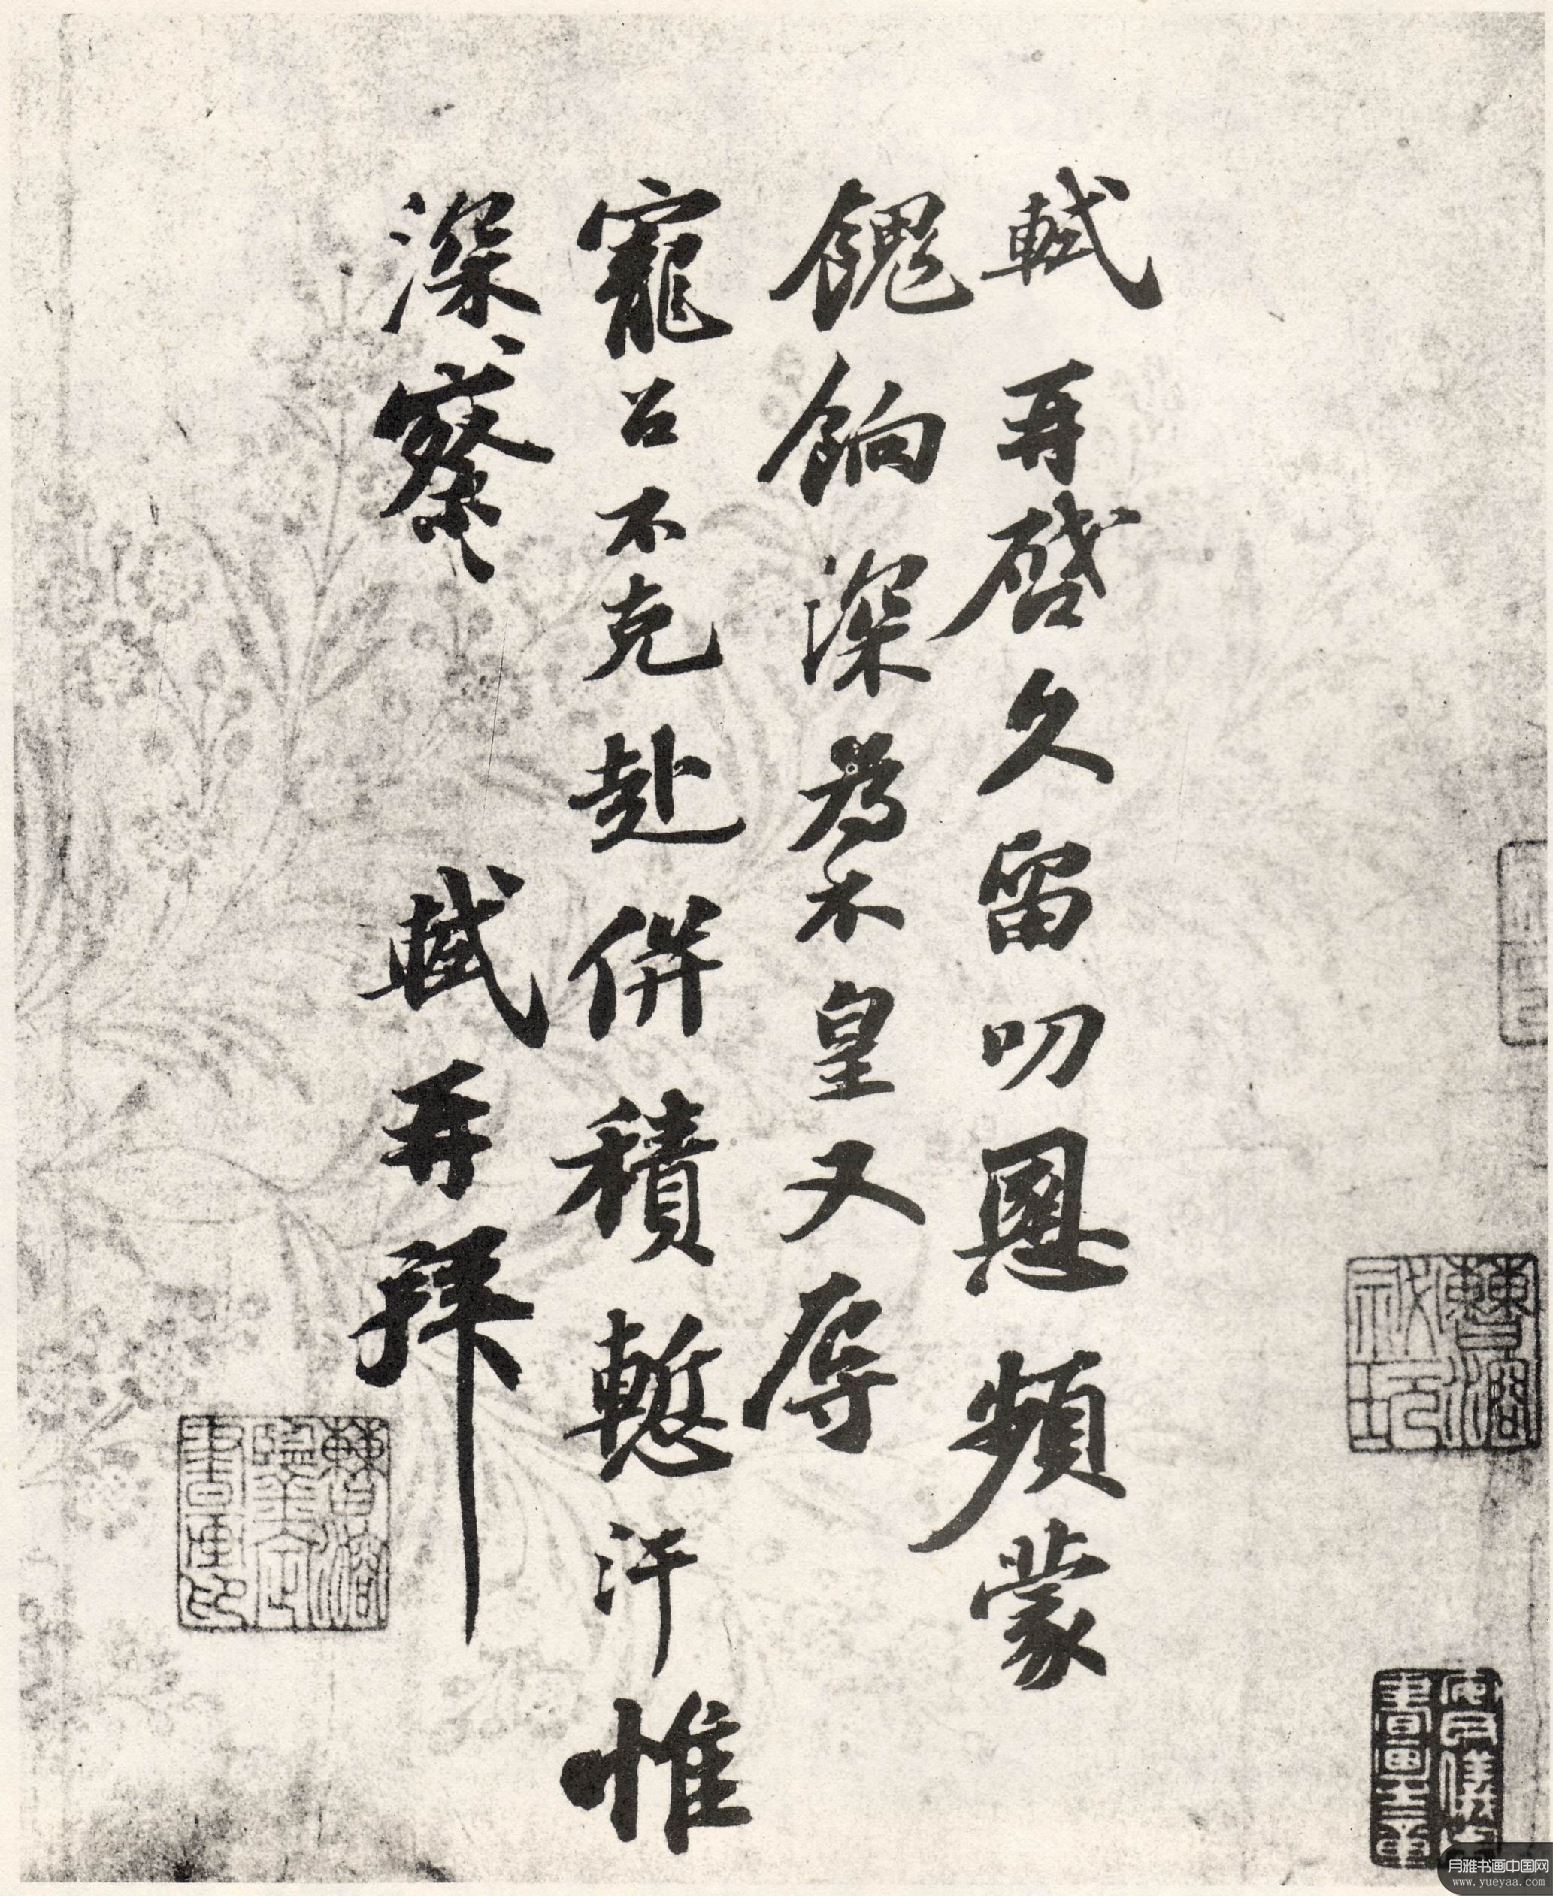 軾再啓久留叨恩頻蒙
餽餉深爲不皇又辱
寵召不克赴併積慙汗惟
深察 軾再拜
安儀周
書畫之章
月雅书画中国网
www.yueyaa.com